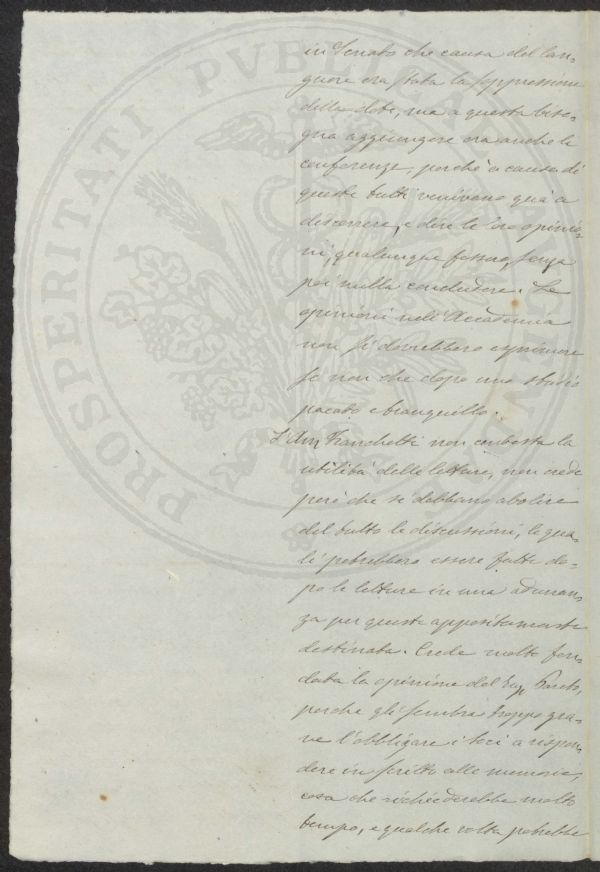 in Senato che causa del lan-
guore era stata la soppressione
della dote, ma a questa biso-
gna aggiungere ora anche le
conferenze, perché a causa di
queste tutti venivano quà a
discorrere, e dire le loro opinio-
ni, qualunque fossero, senza
poi nulla concludere. Le
opinioni nell'Accademia
non si dovrebbero esprimere
se non che dopo uno studio
pacato e tranquillo.
L'Avv. Franchetti non contesta la
utilità delle letture, non crede
però che si debbano abolire
del tutto le discussioni, le qua-
li potrebbero essere fatte do-
po le letture in una adunan-
za per queste appositamente
destinata. Crede molto fon-
data la opinione del Sig. Pareto,
perchè gli sembra troppo gra-
ve l'obbligare i soci a rispon-
dere in scritto alle memorie,
cosa che richiederebbe molto
tempo, e qualche volta potrebbe
PROSPERITATI PVBLICAE AVGENDAE